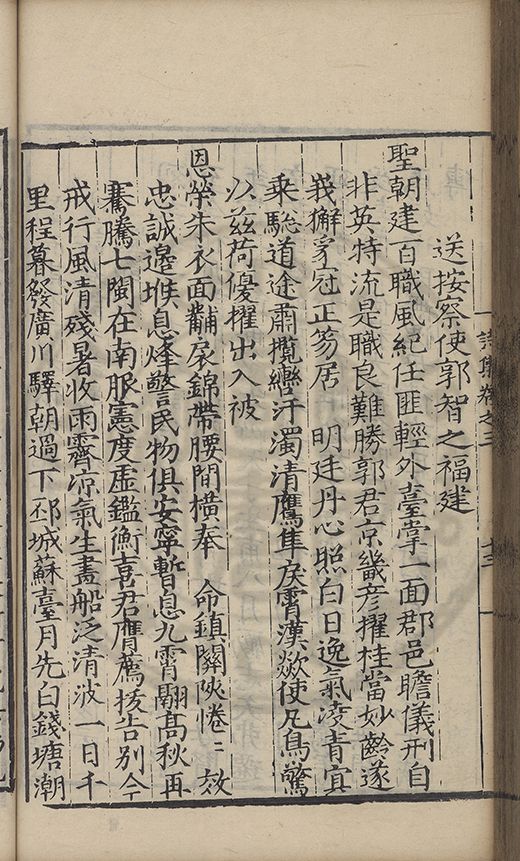 送按察使郭智之福建
聖朝建百職風紀任匪輕外臺掌一面郡邑瞻儀刑自
非英特流是職良難勝郭君京畿彦擢桂當妙齡遂
峩獬豸冠正笏居　明廷丹心照白日逸氣凌青冥
乗驄道途肅攬轡汗濁清鷹隼戾霄漢欻使凡鳥驚
以兹荷優擢出入被
恩榮朱衣面黼扆錦帶腰間横奉　命鎮關陜惓〻效
忠誠邊堠息烽警民物俱安寧暫息九霄翮高秋再
騫騰七閩在南服憲度虚鑑衡喜君膺薦拔告别今
戒行風清殘暑收雨霽凉氣生畫船泛清波一日千
里程暮發廣川驛朝過下邳城蘇臺月先白錢塘潮
詩集卷之三
十三